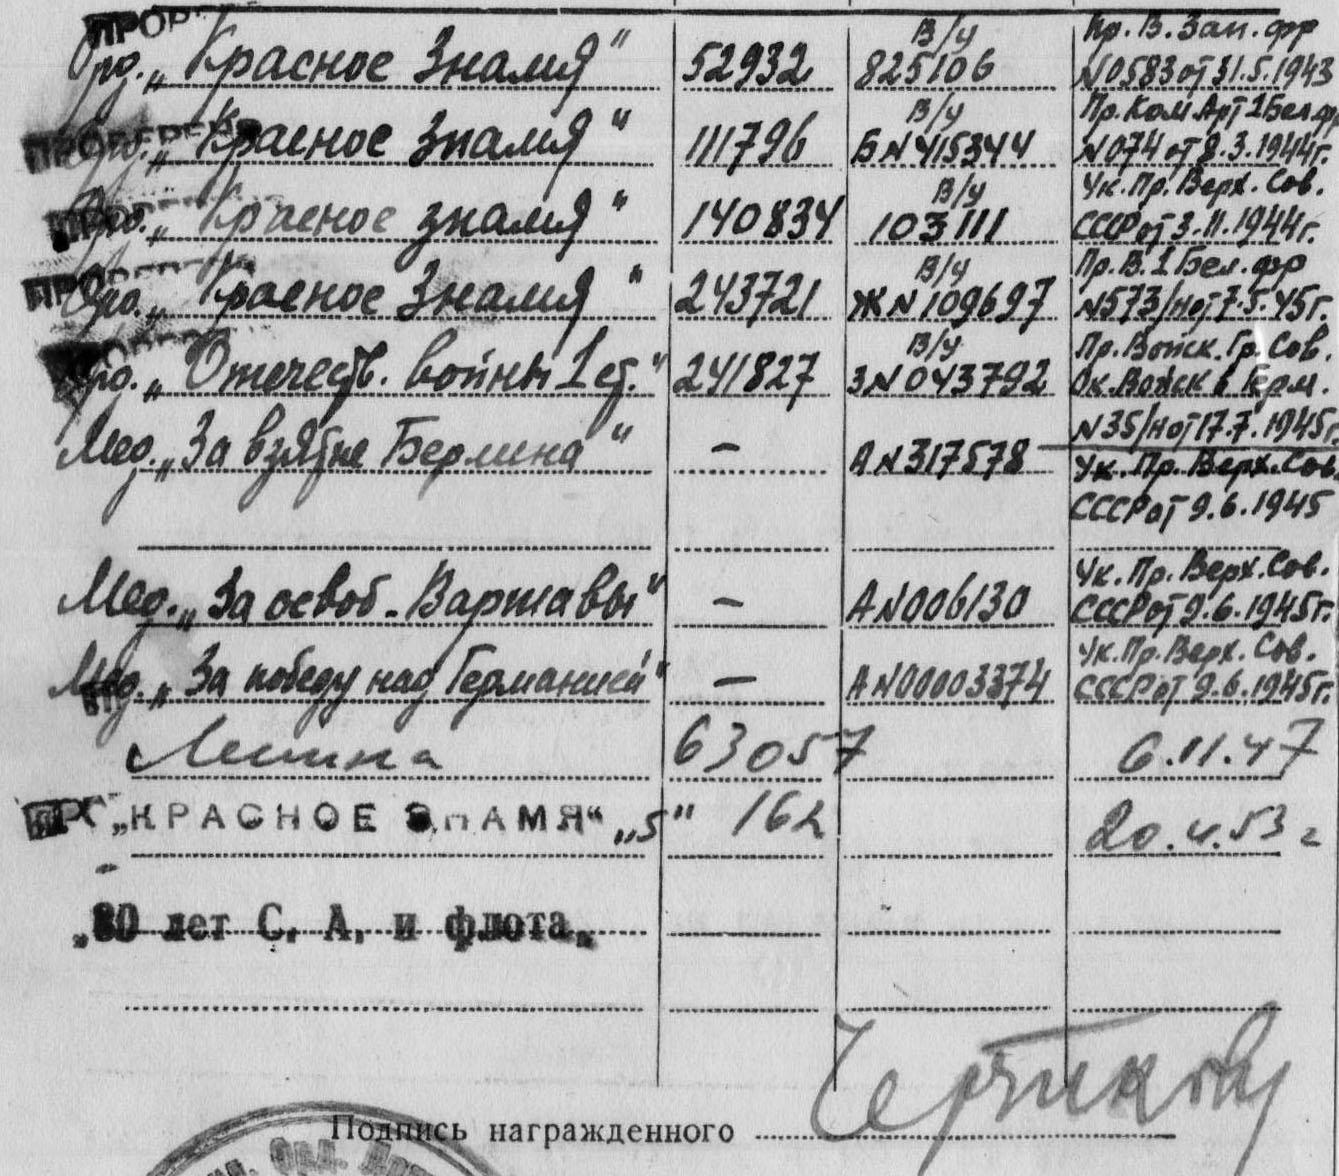 Орд. „Красное Знамя" 52932 В/у 825106 Пр. В. Зап. фр N0583 от 31.5.1943
ПРОВЕРЕНО
Орд. „Красное Знамя" 111796 В/у Б N415344 Пр. Ком. Арт 1 Бел. фр N074 от 8.3.1944г.
Орд. „Красное знамя" 140834 В/у 103111 Ук. Пр. Верх. Сов. СССР от 3.11.1944г.
Орд. „Красное Знамя" 243721 В/у Ж N109697 Пр. В. 1 Бел. фр N573/н от 7.5.45г.
Орд. „Отечеств. войны 1 ст." 241827 В/у З N043792 Пр. Войск. Гр. Сов. Ок. Войск в Герм. N35/н от 17.7.1945г.
Мед. „За взятие Берлина" – А N317578 Ук. Пр. Верх. Сов. СССР от 9.6.1945
Мед. „За освоб. Варшавы" – А N006130 Ук. Пр. Верх. Сов. СССР от 9.6.1945г.
Мед. „За победу над Германией" – А N00003374 Ук. Пр. Верх. Сов. СССР от 9.6.1945г.
Ленина 63057 6.11.47
„КРАСНОЕ ЗНАМЯ" „5" 162 53 г
„30 лет С. А. и флота„
Подпись награжденного